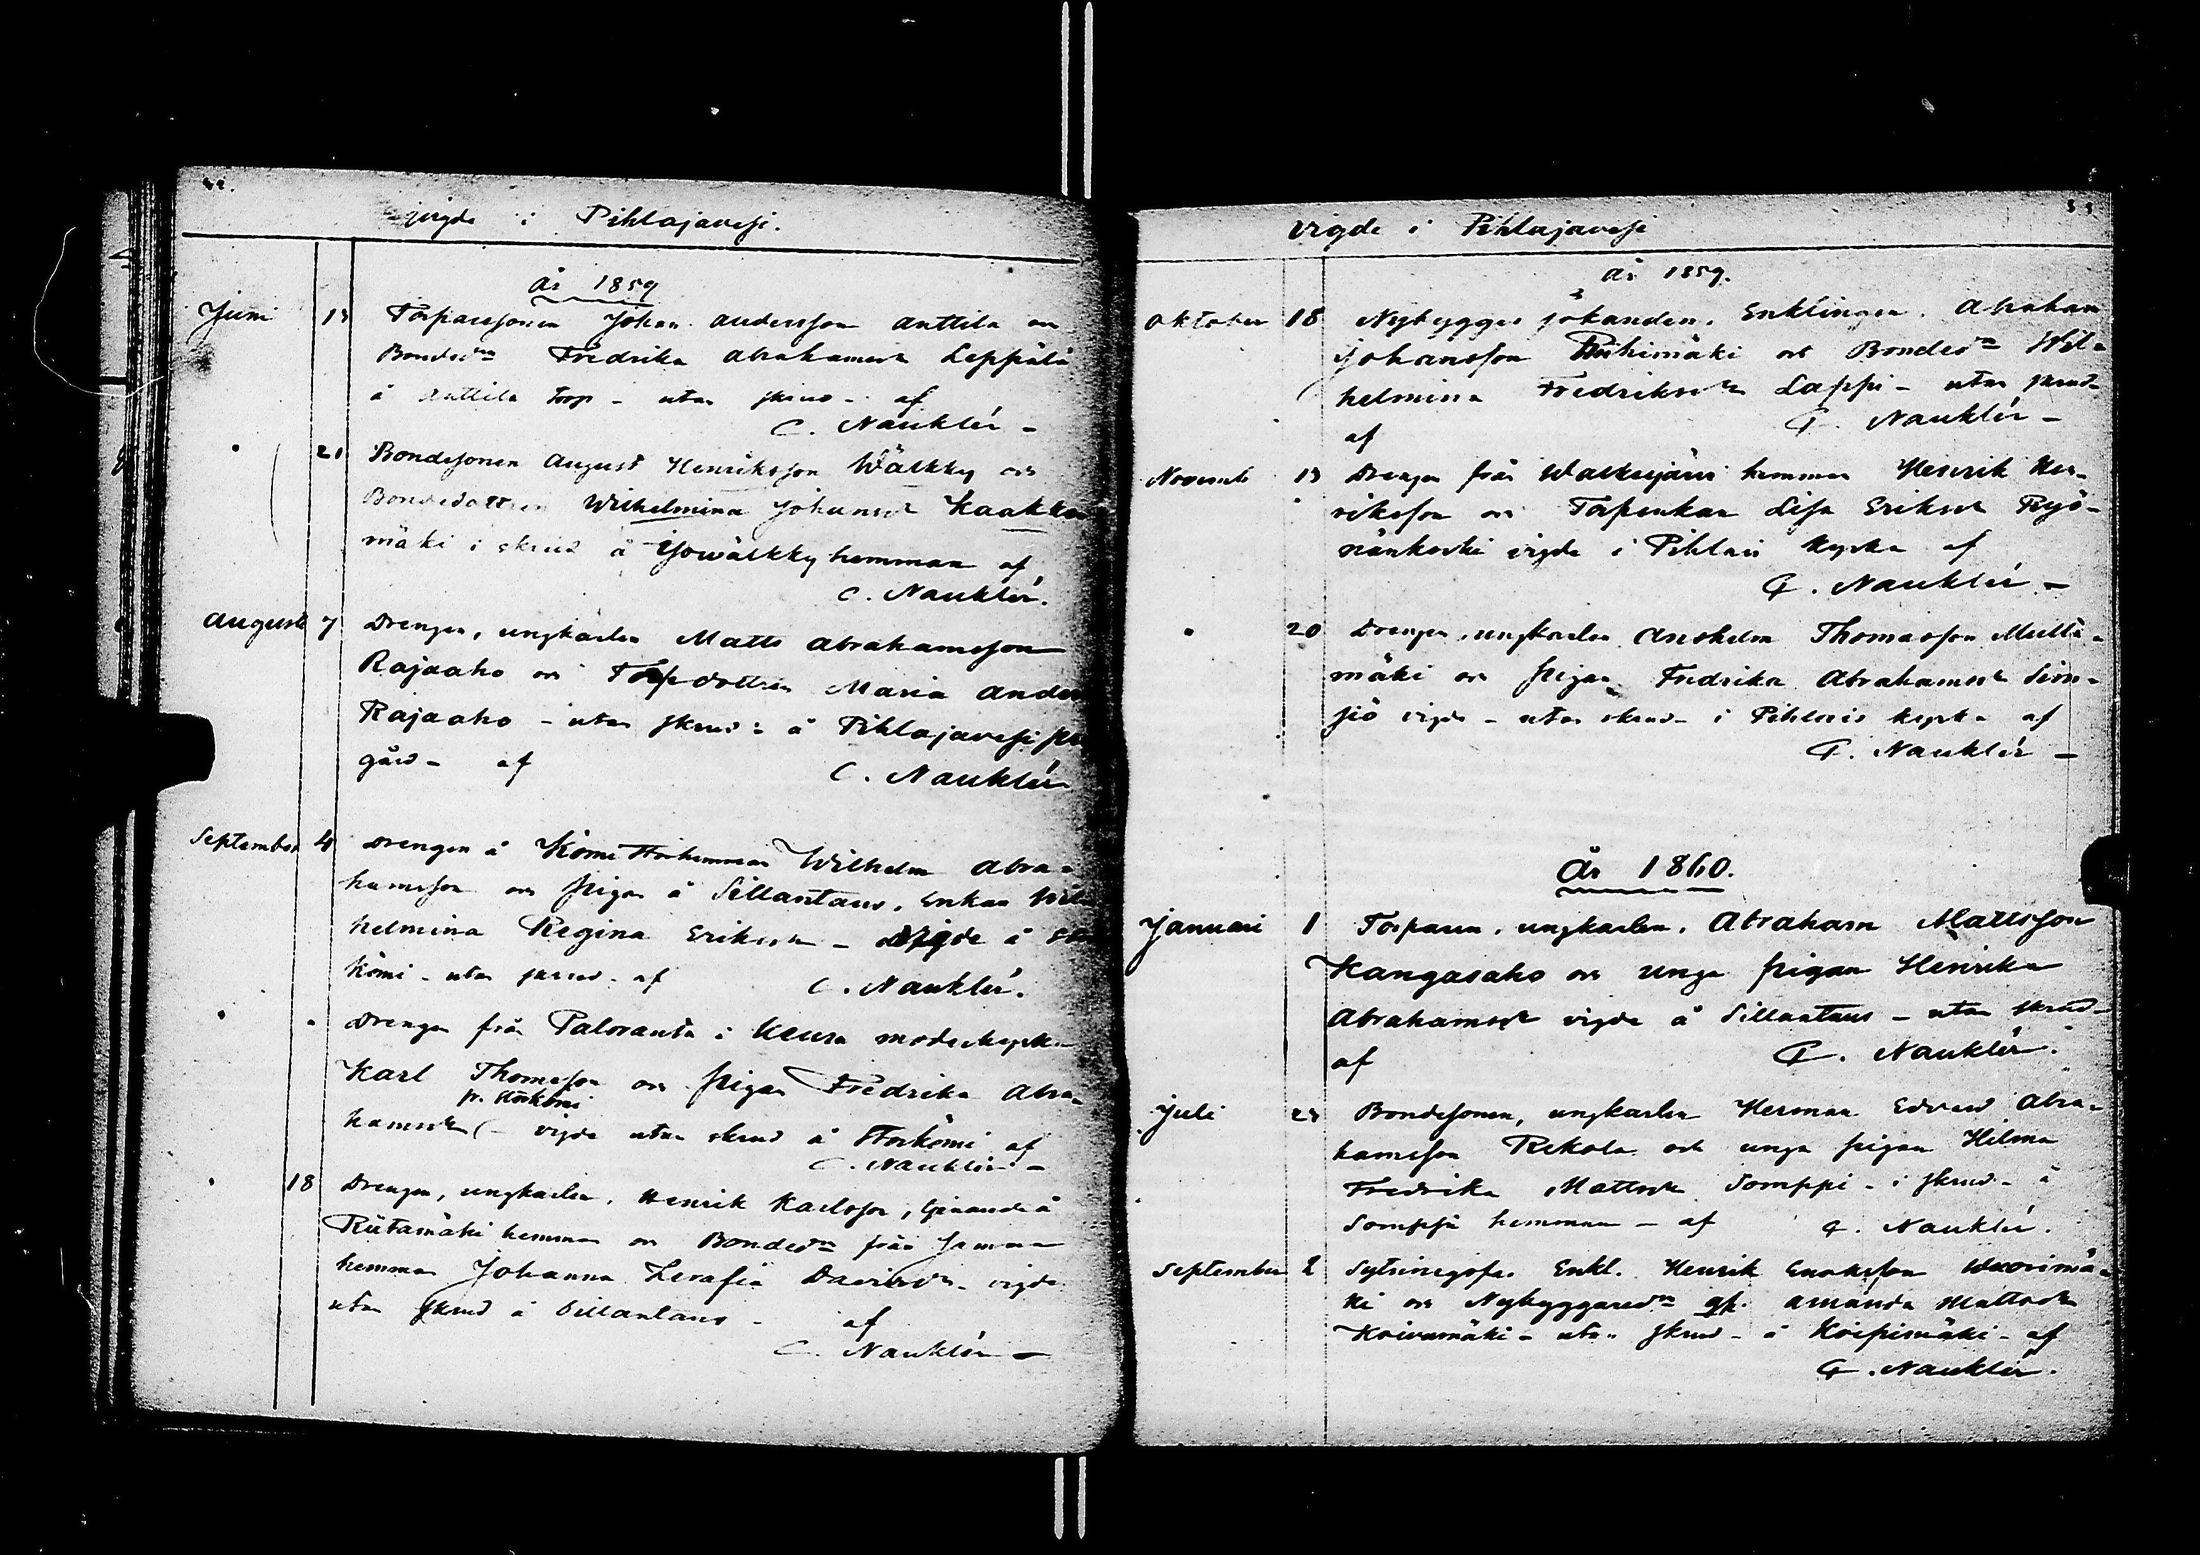 Vigde i Pihlajavesi.
År 1859
Juni 13 Torparesonen Johan Andersson Anttila och
Bonded:n Fredrika Abrahamsdr Leppälä
å Anttila torp - utan skrud - af
C. Nauklér -
" 21 Bondesonen August Henriksson Wälkky och
Bondedottren Wilhelmina Johansdr Kaakko
mäki i skrud å Yowälkky hemman af
C. Nauklér.
Augusti 7 Drengen, ungkarlen Matts Abrahamsson
Rajaaho och Torpdottren Maria Anders
Rajaaho - utan skrud - å Pihlajavesi
gård - af C. Nauklér
September 4 Drengen å Kömi Storhemman Wilhelm Abra-
hamsson och pigan å Sillantaus, Enkan Wil
helmina Regina Eriksdr - vigde å
Kömi - utan skrud - af C. Nauklér.
" " Drengen från Paloranta i Keuru moderkyrka
Karl Thomsson och pigan Fredrika Abra-
fr. Storkömi
hamsdr - vigde utan skrud å Storkömi af
C. Nauklér -
" 18 Drengen, ungkarlen, Henrik Karlsson, tjenande å
Riitamäki hemman och Bonded:n från
hemman Johanna Serafia Davidsdr - vigde
utan skrud å Sillantaus - af
C. Nauklér -
Vigde i Pihlajavesi
År 1859.
Oktober 18 Nybygges sökanden, Enklingen, Abraham
Johansson Riihimäki och Bonded:n Wil-
helmina Fredriksdr Lappi - utan skrud -
af C. Nauklér -
Novemb 13 Drengen från Walkeajärvi hemman Henrik Hen-
riksson och Torpenkan Lisa Eriksdr Ryö-
nänkoski vigde i Pihlavis kyrka af
C. Nauklér -
" 20 Drengen, ungkarlen Anshelm Thomasson Multa-
mäki och pigan Fredrika Abrahamsdr Sim-
siö vigde - utan skrud - i Pihlavis kyrka af
C. Nauklér -
År 1860.
Januari 1 Torparen, ungkarlen, Abraham Mattsson
Kangasaho och unga pigan Henrika
Abrahamsdr vigde å Sillantaus - utan skrud -
af C. Nauklér.
Juli 23 Bondesonen, ungkarlen Herman Edvard Abra-
hamsson Rekola och unga pigan Hilma
Fredrika Mattsdr Somppi - i skrud - å
Somppi hemman - af C. Nauklér.
September 2 Sytningsgifva. Enkl. Henrik Enoksson Wuorimä-
ki och Nybyggared:n gf. Amanda Mattsdr
Koivumäki - utan skrud - å Koipimäki - af
C. Nauklér.